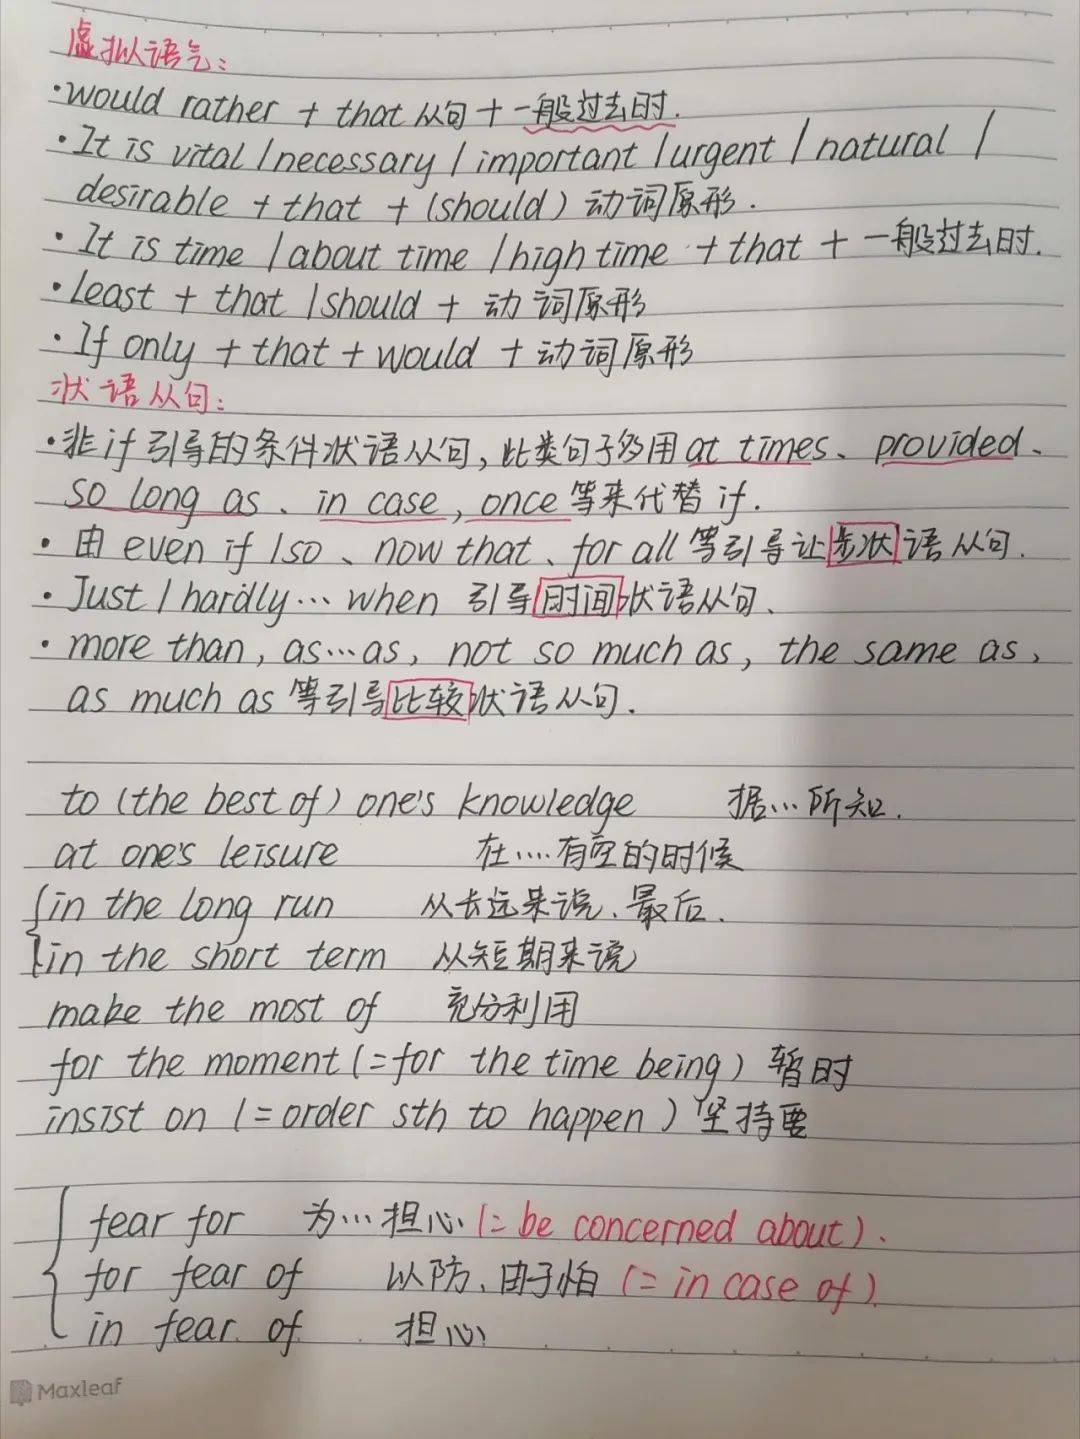 虚拟语气:
·would rather + that 从句 + 一般过去时.
·It is vital / necessary / important / urgent / natural /
desirable + that + (should) 动词原形.
·It is time / about time / high time + that + 一般过去时.
·Least + that / should + 动词原形
·If only + that + would + 动词原形
状语从句:
·非 if 引导的条件状语从句, 此类句子多用 at times、provided、
so long as、in case, once 等来代替 if.
·由 even if / so、now that、for all 等引导让步状语从句.
·Just / hardly… when 引导时间状语从句、
·more than, as…as, not so much as, the same as,
as much as 等引导比较状语从句.
to (the best of) one's knowledge 据…所知.
at one's leisure 在…有空的时候
in the long run 从长远来说、最后.
in the short term 从短期来说
make the most of 充分利用
for the moment (=for the time being) 暂时
insist on (=order sth to happen) 坚持要
fear for 为…担心 (= be concerned about).
for fear of 以防、由于怕 (= in case of)
in fear of 担心
Maxleaf